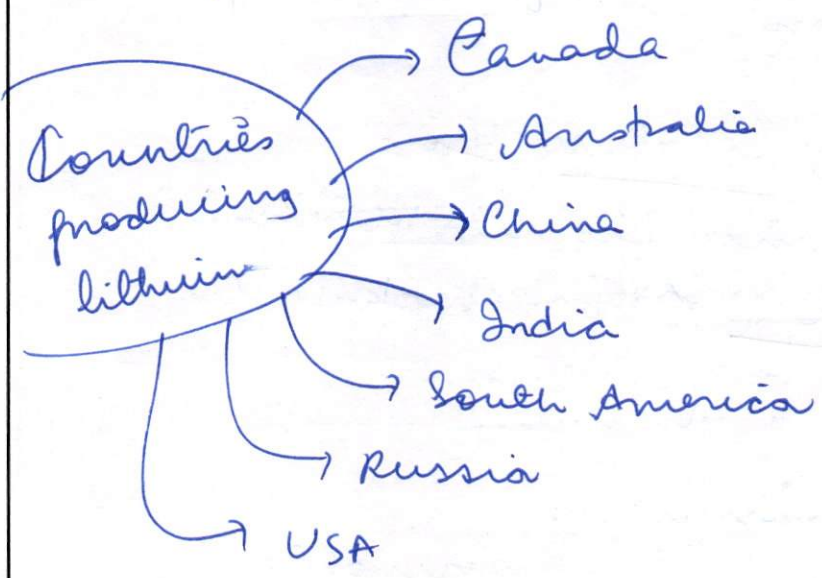 Countries
producing
lithuim
Canada
Australia
China
India
South America
Russia
USA